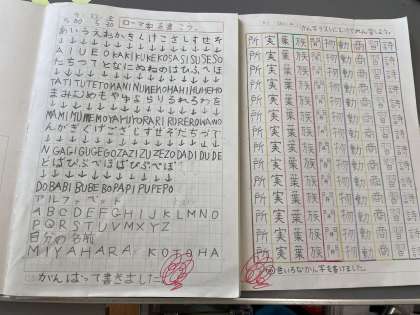 5/30 5/30
ローマ字を書こう。
あいうえおかきくけこさしすせそ
↓↓↓↓↓↓↓↓↓↓↓↓↓↓↓
A I U E O KA KI KU KE KO SA SI SU SE SO
たちつてとなにぬねのはひふへほ
↓↓↓↓↓↓↓↓↓↓↓↓↓↓↓
TA TI TU TE TO NA NI NU NE NO HA HI HU HE HO
まみむめもやゆよらりるれろわを
↓↓↓↓↓↓↓↓↓↓↓↓↓↓↓
MA MI MU ME MO YA YU YO RA RI RU RE RO WA WO
んがぎぐげござじずぜぞだぢづで
↓↓↓↓↓↓↓↓↓↓↓↓↓↓↓
N GA GI GU GE GO ZA ZI ZU ZE ZO DA DI DU DE
どばびぶべぼぱぴぷぺぽ
↓↓↓↓↓↓↓↓↓↓↓
DO BA BI BU BE BO PA PI PU PE PO
アルファベット
A B C D E F G H I J K L M N O
P Q R S T U V W X Y Z
自分の名前
MIYAHARA KOTOHA
がんばって書きました
所実葉族間物動商習詩
所実葉族間物動商習詩
所実葉族間物動商習詩
所実葉族間物動商習詩
所実葉族間物動商習詩
所実葉族間物動商習詩
所実葉族間物動商習詩
所実葉族間物動商習詩
所実葉族間物動商習詩
所実葉族間物動商習詩
所実葉族間物動商習詩
所実葉族間物動商習詩
所実葉族間物動商習詩
色いろなかん字を書けました。